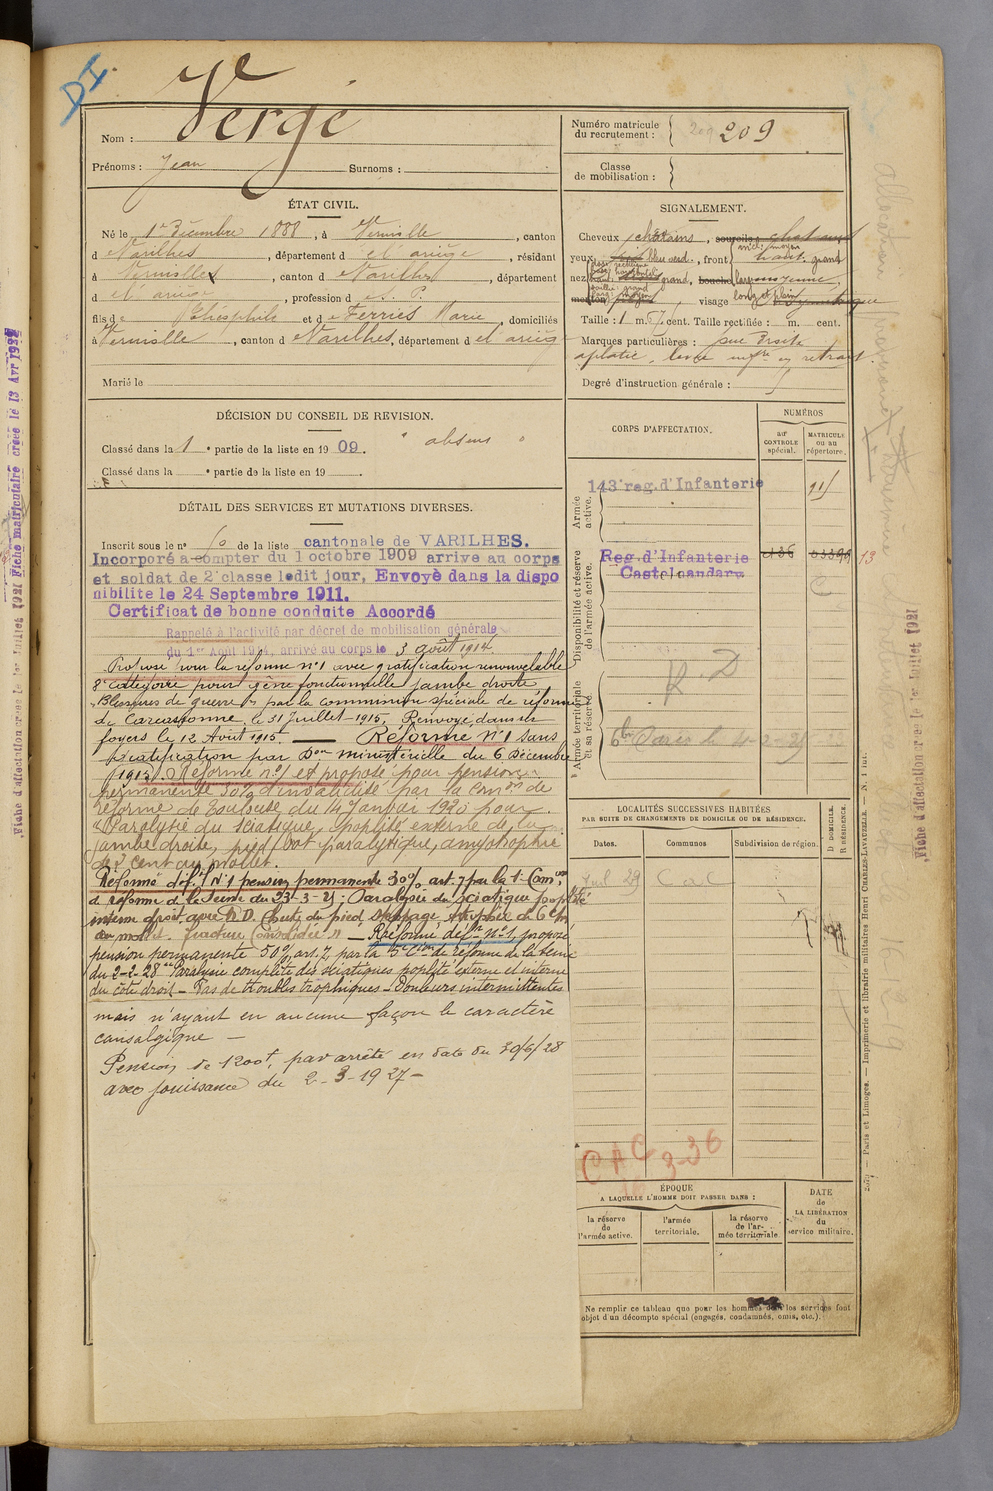 DI
Nom : Vergé
Prénoms : Jean Surnoms :
ÉTAT CIVIL.
Né le 1er Décembre 1888, à Verniolle, canton
d e Varilhes, département d e l'ariège, résidant
à Verniolle, canton d e Varilhes, département
d e l'ariège, profession d
fils de Théophile et d e Ferriès Marie, domiciliés
à Verniolle, canton d e Varilhes, département d e l'arièg
Marié le
DÉCISION DU CONSEIL DE REVISION.
Classé dans la 1 e partie de la liste en 1909. " absent "
Classé dans la e partie de la liste en 19 .
DÉTAIL DES SERVICES ET MUTATIONS DIVERSES.
Inscrit sous le n° 60 de la liste cantonale de VARILHES.
Incorporé à compter du 1 octobre 1909 arrive au corps
et soldat de 2e classe ledit jour, Envoyé dans la dispo
nibilite le 24 Septembre 1911.
Certificat de bonne conduite Accordé
Rappelé à l'activité par décret de mobilisation générale
du 1er Août 1914, arrivé au corps le 3 août 1914.
Proposé pour la réforme n°1 avec gratification renouvelable
8e catégorie pour gêne fonctionnelle jambe droite
"Blessures de guerre" par la commission spéciale de réforme
de Carcassonne, le 31 Juillet 1915, Renvoyé dans ses
foyers le 12 Août 1915. — Réformé N°1 sans
gratification par Don ministérielle du 6 Décembre
1915. Réformé n°1 et proposé pour pension
permanente 30% d'invalidité par la Comon de
réforme de Toulouse du 14 Janvier 1920 pour
"Paralysie du sciatique poplité externe de la
jambe droite, pied bot paralytique, amyotrophie
de 2 cent au mollet.
Réformé déf.if N°1 pension permanente 30% art. 7 par la 1e Comon
d réforme de la Seine du 23-3-25 : Paralysie du sciatique poplité
interne droit avec R.D. Chute du pied Steppage, Atrophie de 6 cm
au mollet. fracture consolidée. — Réformé def n°1, proposé
pension permanente 50% art. 7, par la 3e Con de réforme de la Seine
du 2-2-28 Paralysie complète des sciatiques poplité externe et interne
du côté droit – Pas de troubles trophiques – Douleurs intermittentes
mais n'ayant en aucune façon le caractère
causalgique —
Pension de 1200f, par arrêté en date du 30/6/28
avec jouissance du 2-3-1927 —
Numéro matricule du recrutement : 209 209
Classe de mobilisation :
SIGNALEMENT.
Cheveux châtains, sourcils : chatains
yeux bleu verd., front haut. grand
nez grand, bouche moyenne,
menton, visage long et plein
Taille : 1 m. 67 cent. Taille rectifiée : m. cent.
Marques particulières :
aplatie, lèvre infre en retrait.
Degré d'instruction générale :
CORPS D'AFFECTATION.
NUMÉROS
au CONTROLE spécial.
MATRICULE ou au répertoire.
Armée active.
143e reg. d'Infanterie
Disponibilité et réserve de l'armée active.
Reg. d'Infanterie
Castelnaudary
13
R.D
Armée territoriale et sa réserve.
LOCALITÉS SUCCESSIVES HABITÉES
PAR SUITE DE CHANGEMENTS DE DOMICILE OU DE RÉSIDENCE.
Dates.
Communes
Subdivision de région.
D DOMICILE.
R RÉSIDENCE.
CAC
3-36
ÉPOQUE
A LAQUELLE L'HOMME DOIT PASSER DANS :
la réserve de l'armée active.
l'armée territoriale.
la réserve de l'armée territoriale.
DATE de LA LIBÉRATION du service militaire.
Ne remplir ce tableau que pour les hommes dont les services font
objet d'un décompte spécial (engagés, condamnés, omis, etc.).
2577 — Paris et Limoges. — Imprimerie et librairie militaires Henri CHARLES-LAVAUZELLE. — N. 1 nat.
Fiche d'affectation créée le 1er Juillet 1921
Fiche matriculaire créée le 13 Avr 1922
Fiche d'affectation créée le 1er Juillet 1921